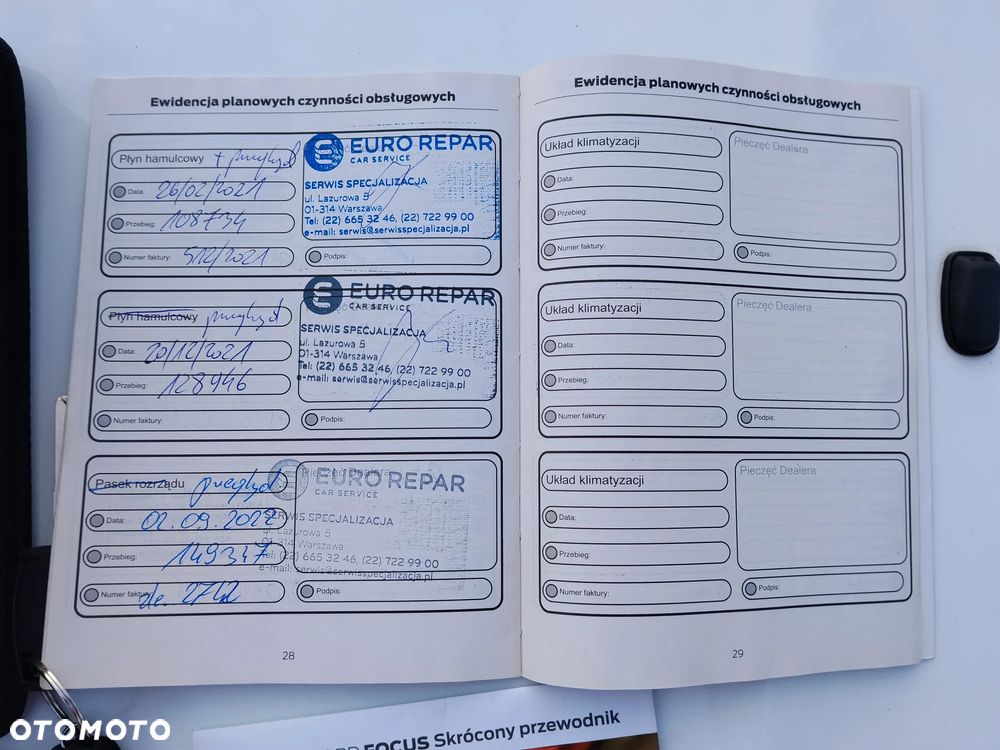 Ewidencja planowych czynności obsługowych
Płyn hamulcowy + przegląd
Data: 26/02/2021
Przebieg: 108734
Numer faktury: 512/2021
EURO REPAR
CAR SERVICE
SERWIS SPECJALIZACJA
ul. Lazurowa 5
01-314 Warszawa
Tel: (22) 665 32 46, (22) 722 99 00
e-mail: serwis@serwisspecjalizacja.pl
Podpis:
Płyn hamulcowy przegląd
Data: 20/12/2021
Przebieg: 128446
Numer faktury:
EURO REPAR
CAR SERVICE
SERWIS SPECJALIZACJA
ul. Lazurowa 5
01-314 Warszawa
Tel: (22) 665 32 46, (22) 722 99 00
e-mail: serwis@serwisspecjalizacja.pl
Podpis:
Pasek rozrządu przegląd
Data: 02.09.2022
Przebieg: 149347
Numer faktury: 2742
Pieczęć Dealera
EURO REPAR
CAR SERVICE
SERWIS SPECJALIZACJA
ul. Lazurowa 5
01-314 Warszawa
Tel: (22) 665 32 46, (22) 722 99 00
e-mail: serwis@serwisspecjalizacja.pl
Podpis:
28
Ewidencja planowych czynności obsługowych
Układ klimatyzacji
Data:
Przebieg:
Numer faktury:
Pieczęć Dealera
Podpis:
Układ klimatyzacji
Data:
Przebieg:
Numer faktury:
Pieczęć Dealera
Podpis:
Układ klimatyzacji
Data:
Przebieg:
Numer faktury:
Pieczęć Dealera
Podpis:
29
FOCUS Skrócony przewodnik
OTOMOTO